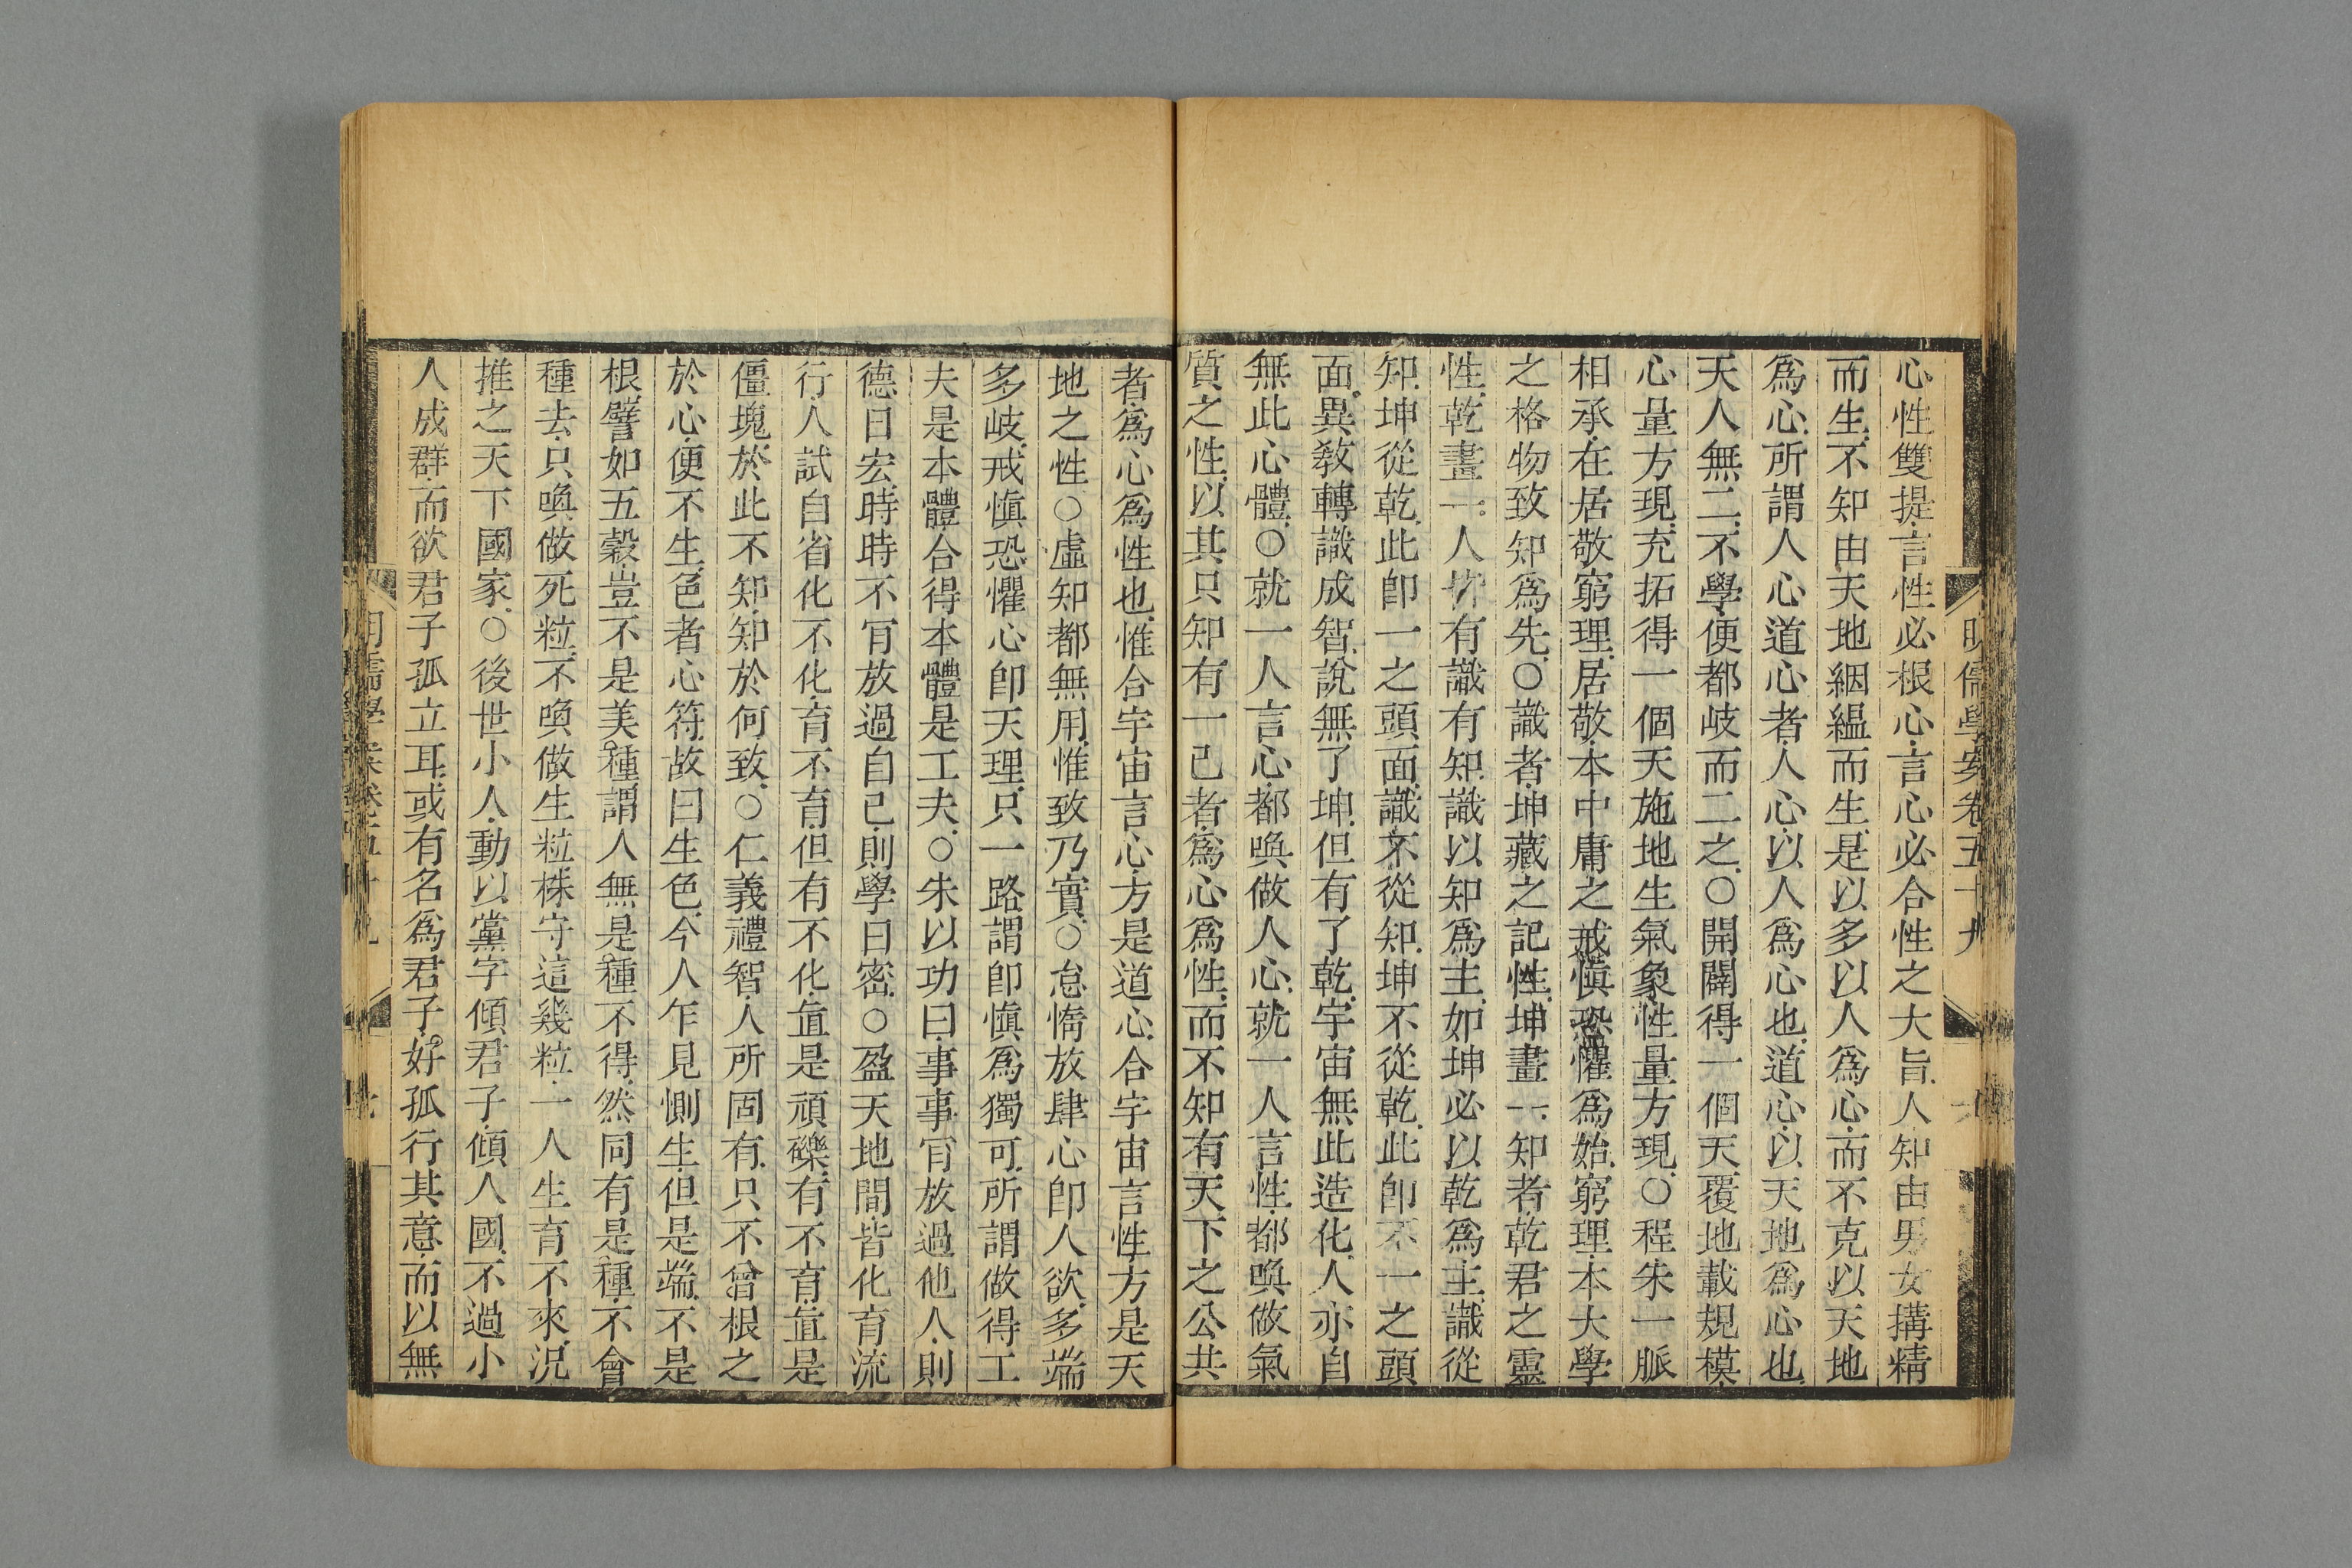 心性雙提言性必根心言心必合性之大旨人知由男女搆精
而生不知由天地絪緼而生是以多以人爲心而不克以天地
爲心所謂人心道心者人心以人爲心也道心以天地爲心也
天人無二不學便都岐而二之○開闢得一個天覆地載規模
心量方現充拓得一個天施地生氣象性量方現○程朱一脈
相承在居敬窮理居敬本中庸之戒慎恐懼爲始窮理本大學
之格物致知爲先○識者坤藏之記性坤畫一知者乾君之靈
性乾畫一人有識有知識以知爲主如坤必以乾爲主識從
知坤從乾此卽一之頭面識不從知坤不從乾此卽不一之頭
面異敎轉識成智說無了坤但有了乾宇宙無此造化人亦自
無此心體○就一人言心都喚做人心就一人言性都喚做氣
質之性以其只知有一己者爲心爲性而不知有天下之公共
者爲心爲性也惟合宇宙言心方是道心合宇宙言性方是天
地之性○虛知都無用惟致乃實○怠惰放肆心卽人欲多端
多岐戒慎恐懼心卽天理只一路謂卽慎爲獨可所謂做得工
夫是本體合得本體是工夫○朱以功曰事事肎放過他人則
德日宏時時不肎放過自己則學日密○盈天地間皆化育流
行人試自省化不化育不育但有不化直是頑礫有不育直是
僵塊於此不知知於何致○仁義禮智人所固有只不曾根之
於心便不生色者心符故曰生色今人乍見惻生但是端不是
根譬如五穀豈不是美種謂人無是種不得然同有是種不會
種去只喚做死粒不喚做生粒株守這幾粒一人生育不來況
推之天下國家○後世小人動以黨字傾君子傾人國不過小
人成群而欲君子孤立耳或有名爲君子好孤行其意而以無